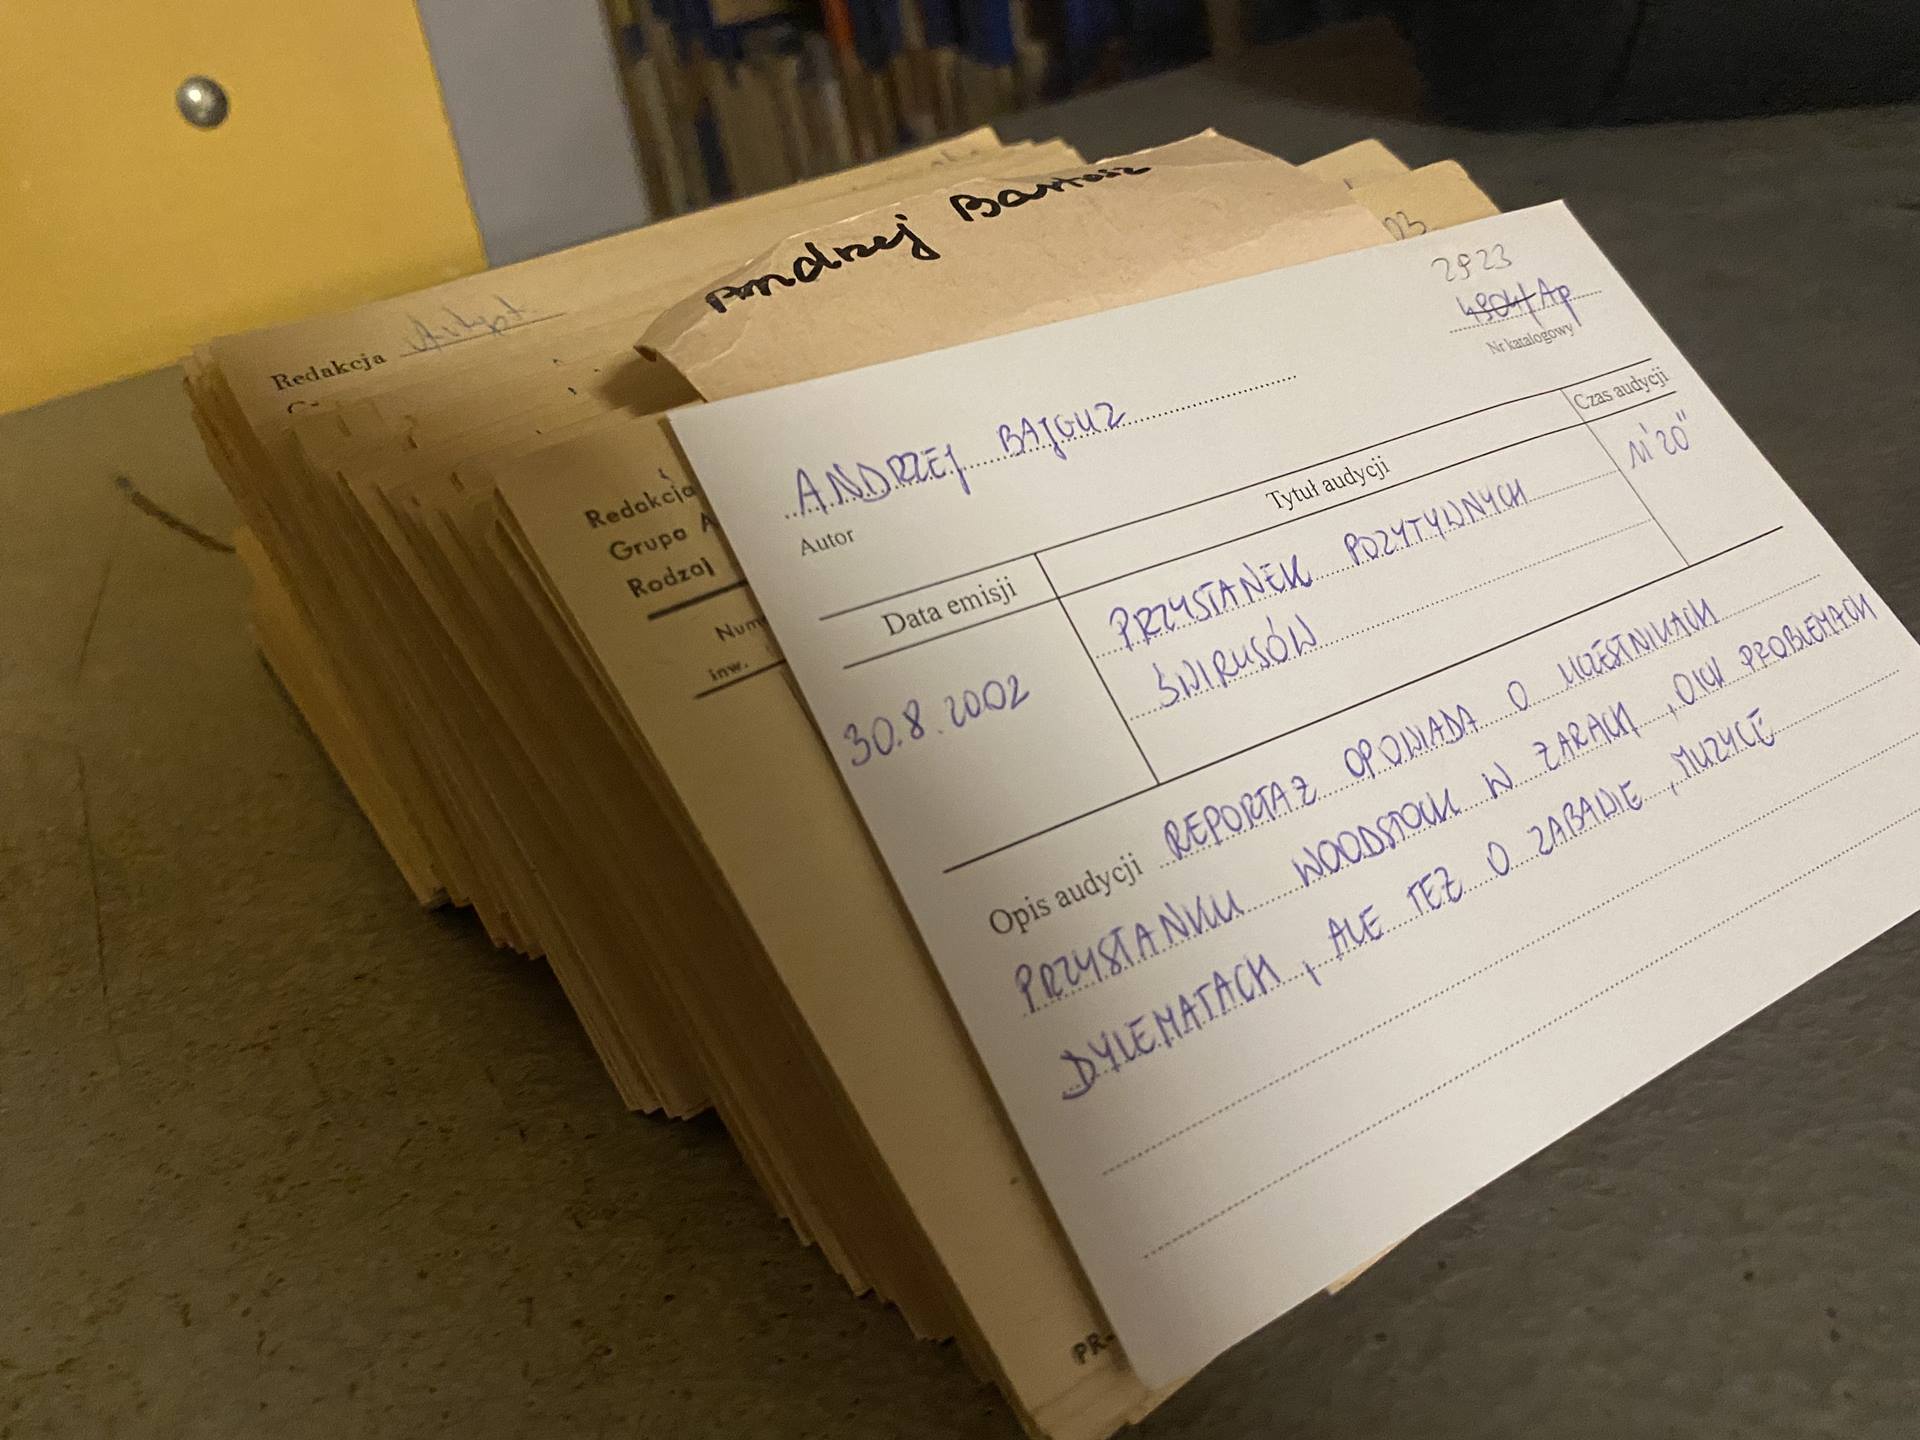 Andrzej Bartosz
Redakcja
03
Redakcja
Grupa A
Rodzaj
Num
inw.
PR-
2923
4904/Ap
Nr katalogowy
ANDRZEJ BAJGUZ
Autor
Data emisji
Tytuł audycji
Czas audycji
30.8.2002
PRZYSTANEK POZYTYWNYCH
ŚWIRUSÓW
11'20"
Opis audycji REPORTAŻ OPOWIADA O UCZESTNIKACH
PRZYSTANKU WOODSTOCK W ŻARACH, O ICH PROBLEMACH
DYLEMATACH, ALE TEŻ O ZABAWIE, MUZYCE